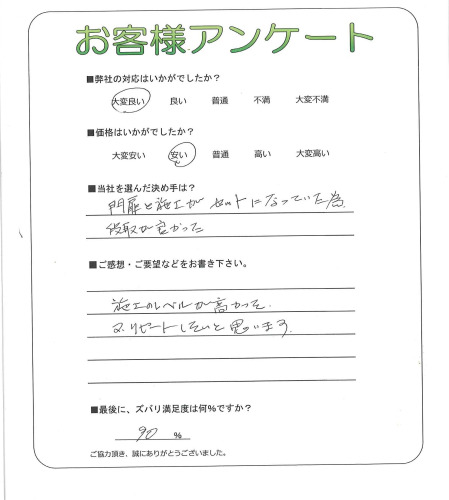 お客様アンケート
■弊社の対応はいかがでしたか？
大変良い 良い 普通 不満 大変不満
■価格はいかがでしたか？
大変安い 安い 普通 高い 大変高い
■当社を選んだ決め手は？
門扉と施工が セットになっていた為
段取が良かった
■ご感想・ご要望などをお書き下さい。
施工のレベルが高かった.
又リピートしたいと思います.
■最後に、ズバリ満足度は何%ですか？
90 %
ご協力頂き、誠にありがとうございました。